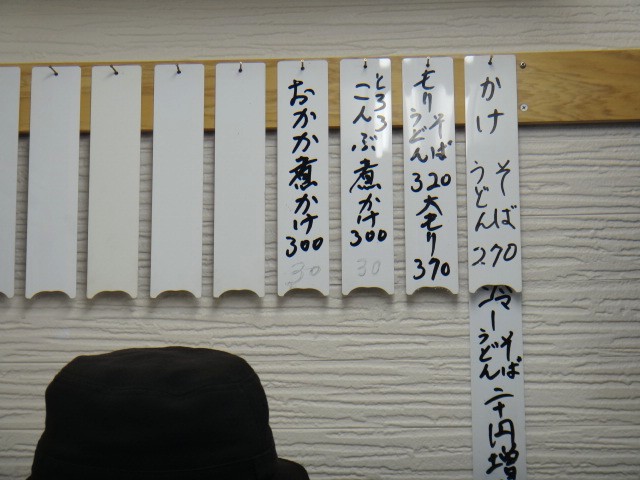 かけ そば うどん 270
冷し そば うどん 二十円増
もり そば うどん 320 大もり 370
とろろ こんぶ煮かけ 300
30
おかか煮かけ 300
30